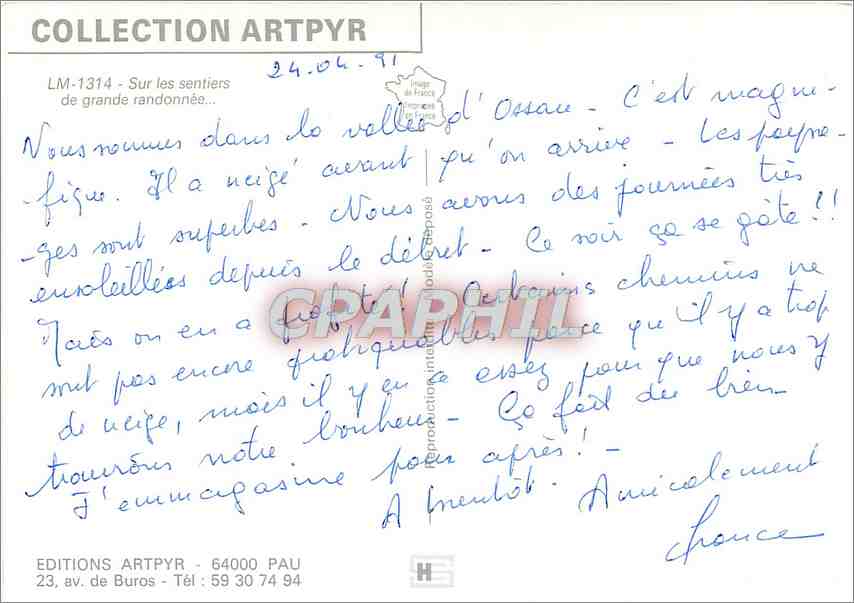 COLLECTION ARTPYR
24.04.91
LM-1314 - Sur les sentiers
de grande randonnée...
Image
de France
Imprimée
en France
Nous sommes dans la vallée d'Ossau - C'est magni-
-fique. Il a neigé avant qu'on arrive - Les paysa-
-ges sont superbes - Nous avons des journées très
ensoleillées depuis le début - Ce soir ça se gâte !!
Mais on en a profité ! Certains chemins ne
sont pas encore pratiquables parce qu'il y a trop
de neige, mais il y en a assez pour que nous y
trouvons notre bonheur - Ça fait du bien -
J'emmagasine pour après ! -
A bientôt. Amicalement
France
Reproduction interdite Modèle déposé
CPAPHIL
EDITIONS ARTPYR - 64000 PAU
23, av. de Buros - Tél : 59 30 74 94
H